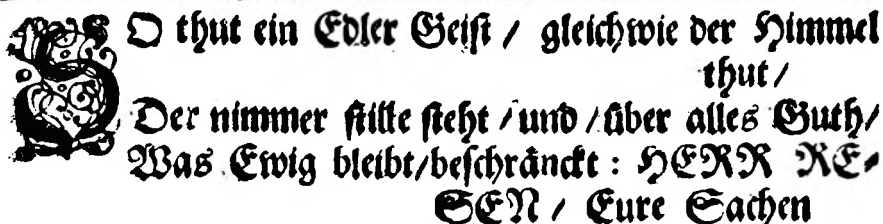 SO thut ein Edler Geist / gleichwie der Himmel
thut /
Der nimmer stille steht / und / über alles Guth /
Was Ewig bleibt / beschränckt : HERR RE-
SEN / Eure Sachen